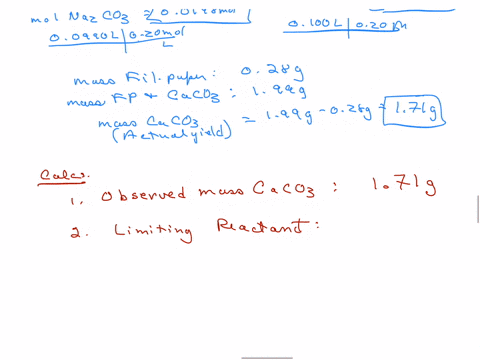 mol Na2CO3 = 0.0198mol
0.0990L | 0.20mol
L
0.100L | 0.20
mass Fil. paper: 0.28g
mass FP + CaCO3: 1.99g
mass CaCO3 = 1.99g - 0.28g = 1.71g
(Actual yield)
Calcs.
1. Observed mass CaCO3 : 1.71g
2. Limiting Reactant: